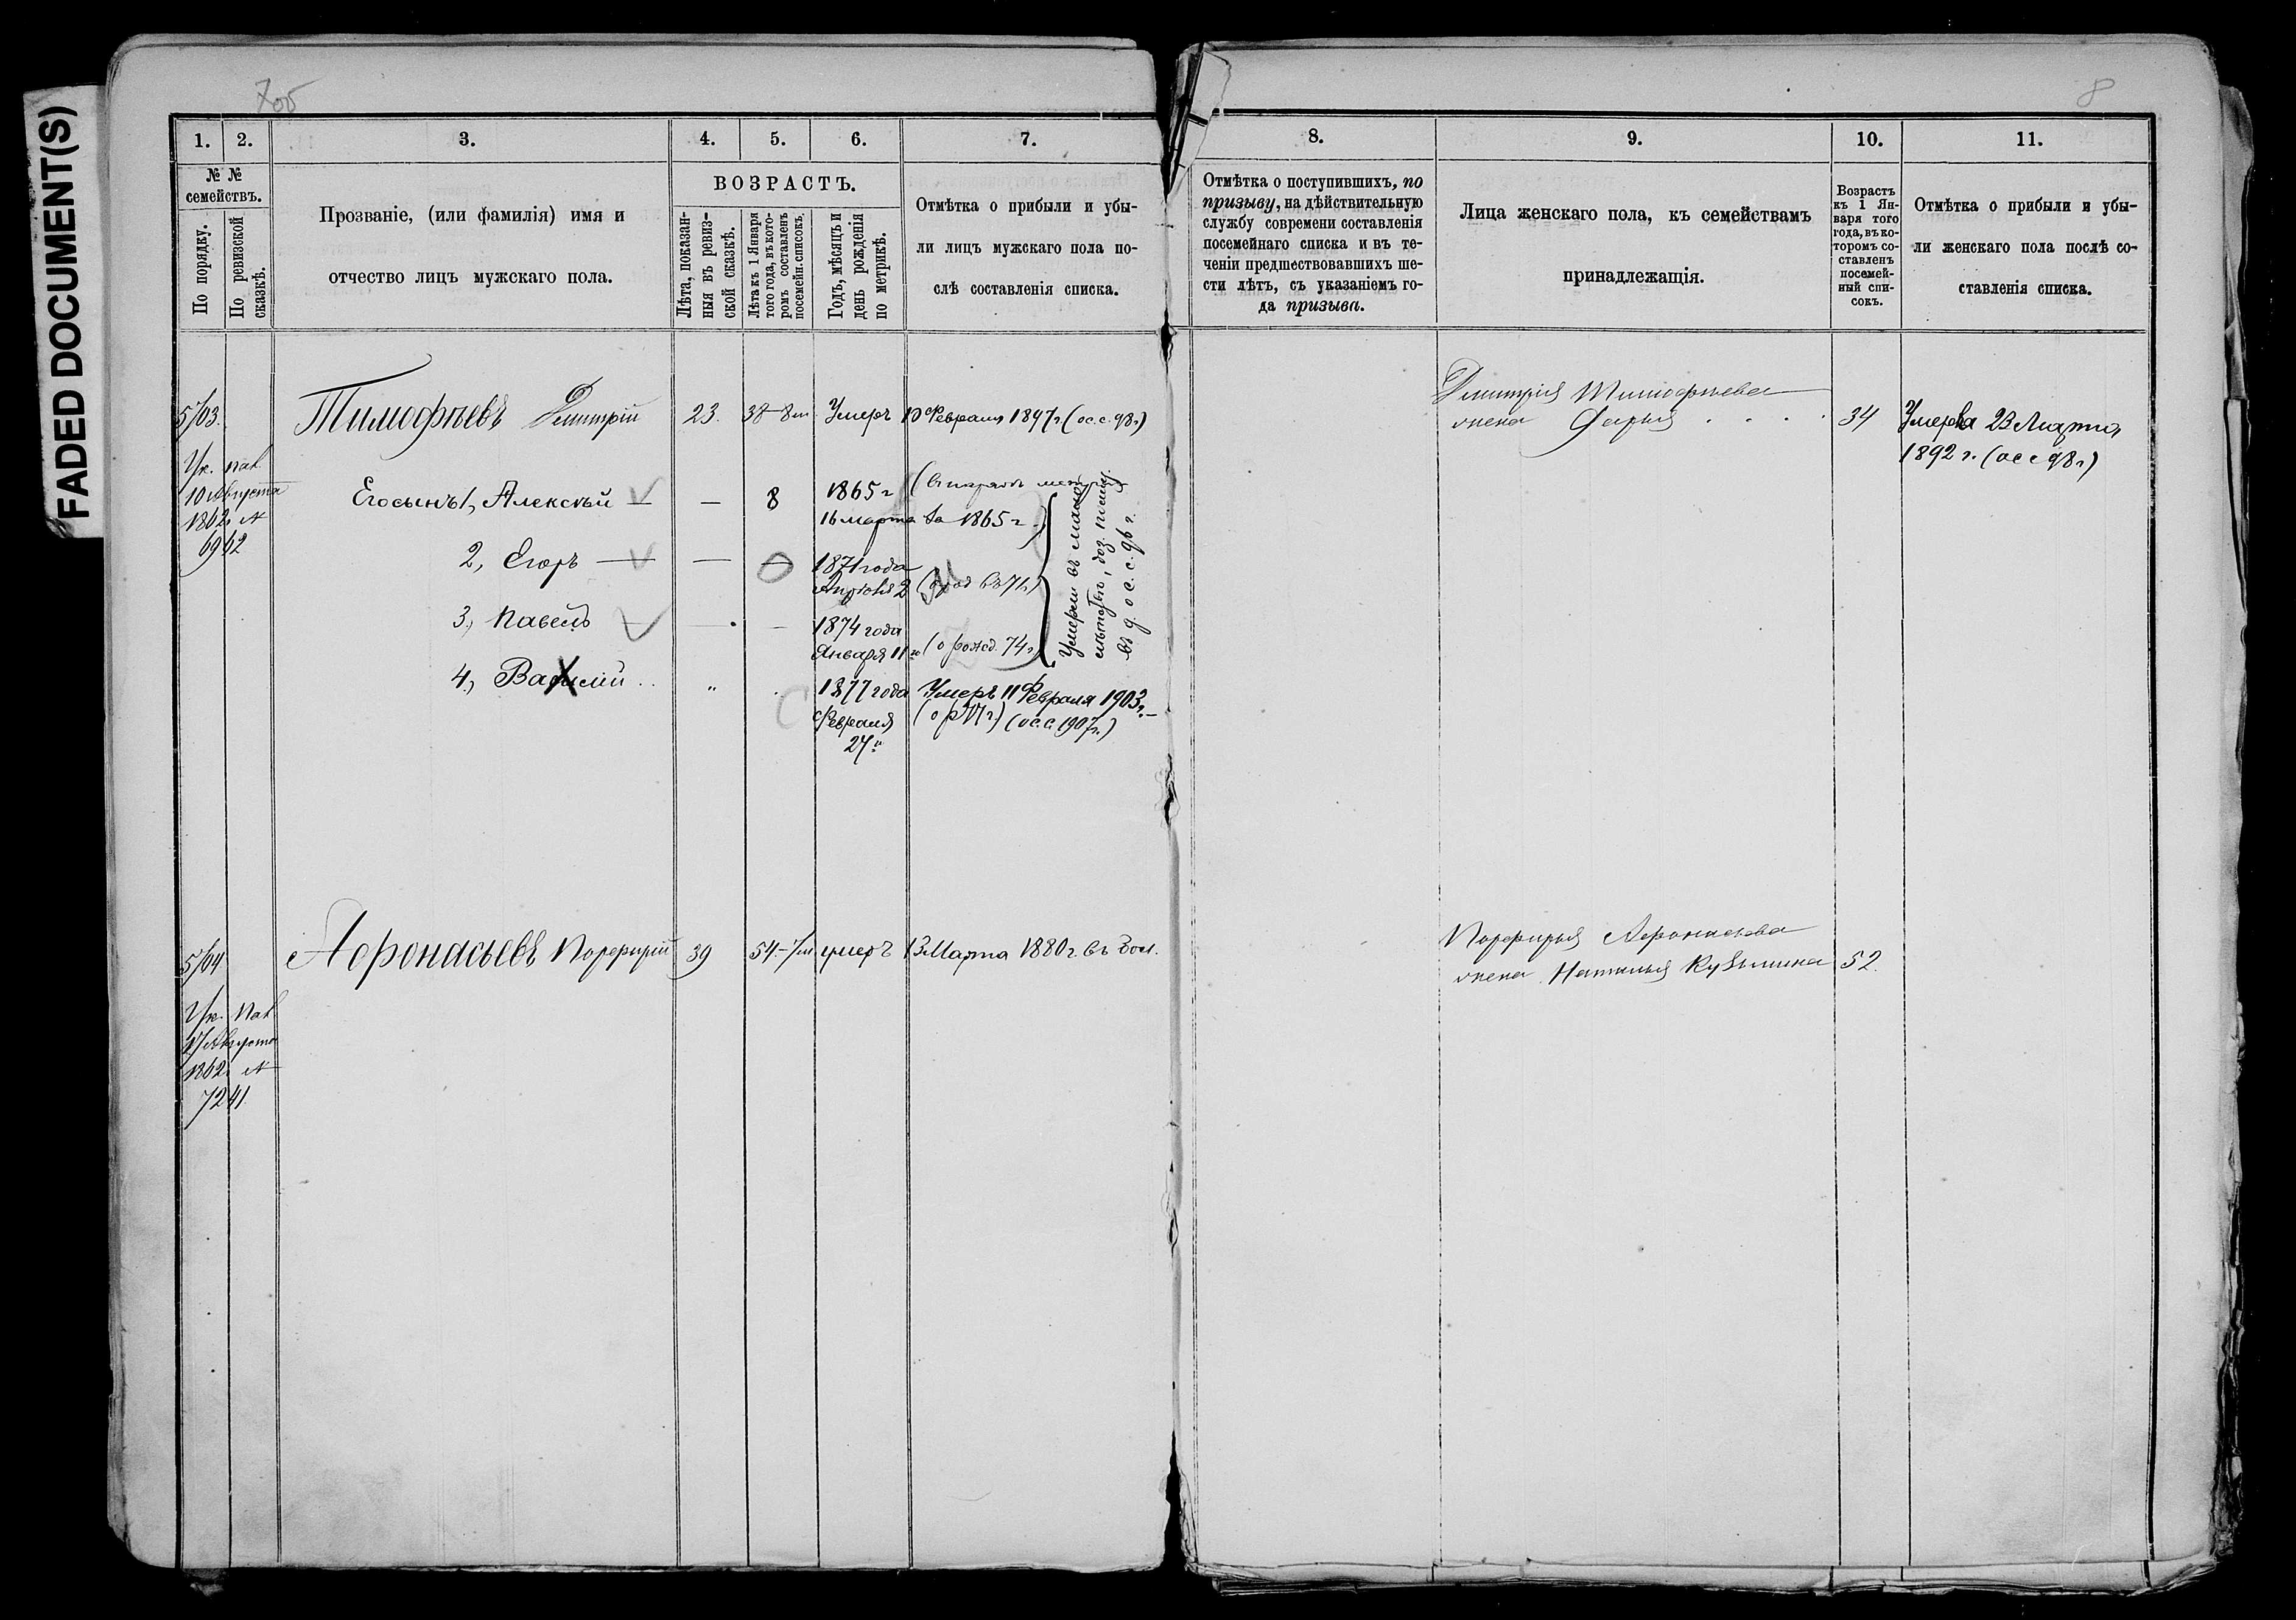 FADED DOCUMENT(S)
705
8
1.
2.
3.
4.
5.
6.
7.
8.
9.
10.
11.
№ №
семействъ.
По порядку.
По ревизской
сказкѣ.
Прозваніе, (или фамилія) имя и
отчество лицъ мужскаго пола.
ВОЗРАСТЪ.
Лѣта, показан-
ныя въ ревиз-
ской сказкѣ.
Лѣта къ 1 Января
того года, въ кото-
ромъ составленъ
посемейн. списокъ.
Годъ, мѣсяцъ и
день рожденія
по метрикѣ.
Отмѣтка о прибыли и убы-
ли лицъ мужскаго пола по-
слѣ составленія списка.
Отмѣтка о поступившихъ, по
призыву, на дѣйствительную
службу современи составленія
посемейнаго списка и въ те-
ченіи предшествовавшихъ ше-
сти лѣтъ, съ указаніемъ го-
да призыва.
Лица женскаго пола, къ семействамъ
принадлежащія.
Возрастъ
къ 1 Ян-
варя того
года, въ ко-
торомъ со-
ставленъ
посемей-
ный спи-
сокъ.
Отмѣтка о прибыли и убы-
ли женскаго пола послѣ со-
ставленія списка.
5/03.
Тимофѣевъ Дмитрій
23.
38
Умеръ 10 Февраля 1897 г. (ос. с. 98 г.)
Дмитрія Тимофѣева
жена Дарья
34
Умерла 23 Марта
1892 г. (ос с 98 г)
Ук. Пал.
10 Августа
1862 г. №
6962
Его сынъ 1, Алексѣй —
—
8
1865 г
16 марта
за 1865 г.)
2, Егоръ —
—
1871 года
Апрѣля 2
3, Павелъ —
—
1874 года
Января 11 го
(о рожд. 74 г.)
Умерли въ мало
въ д. о с. с. 96 г.
4, Василій
"
1877 года
Февраля
27 го
Умеръ 11 Февраля 1903 г. —
(ос. с. 1907 г.)
5/04
Афонасьевъ Порфирій
39
54
умеръ 13 Марта 1880 г.
Порфирья Афонасьева
жена Наталья Кузьмина
52.
Ук. Пал.
17 Августа
1862 г. №
7241.